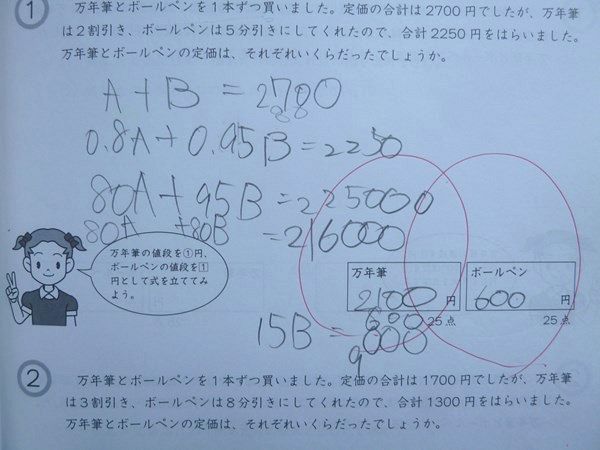 1 万年筆とボールペンを1本ずつ買いました。定価の合計は2700円でしたが、万年筆
は2割引き、ボールペンは5分引きにしてくれたので、合計2250円をはらいました。
万年筆とボールペンの定価は、それぞれいくらだったでしょうか。
A+B=2700
0.8A+0.95B=2250
80A+95B=225000
80A +80B =216000
万年筆の値段を①円、
ボールペンの値段を1
円として式を立ててみ
よう。
万年筆 ボールペン
2100円 600円
600
25点 25点
15B=9000
2 万年筆とボールペンを1本ずつ買いました。定価の合計は1700円でしたが、万年筆
は3割引き、ボールペンは8分引きにしてくれたので、合計1300円をはらいました。
万年筆とボールペンの定価は、それぞれいくらだったでしょうか。